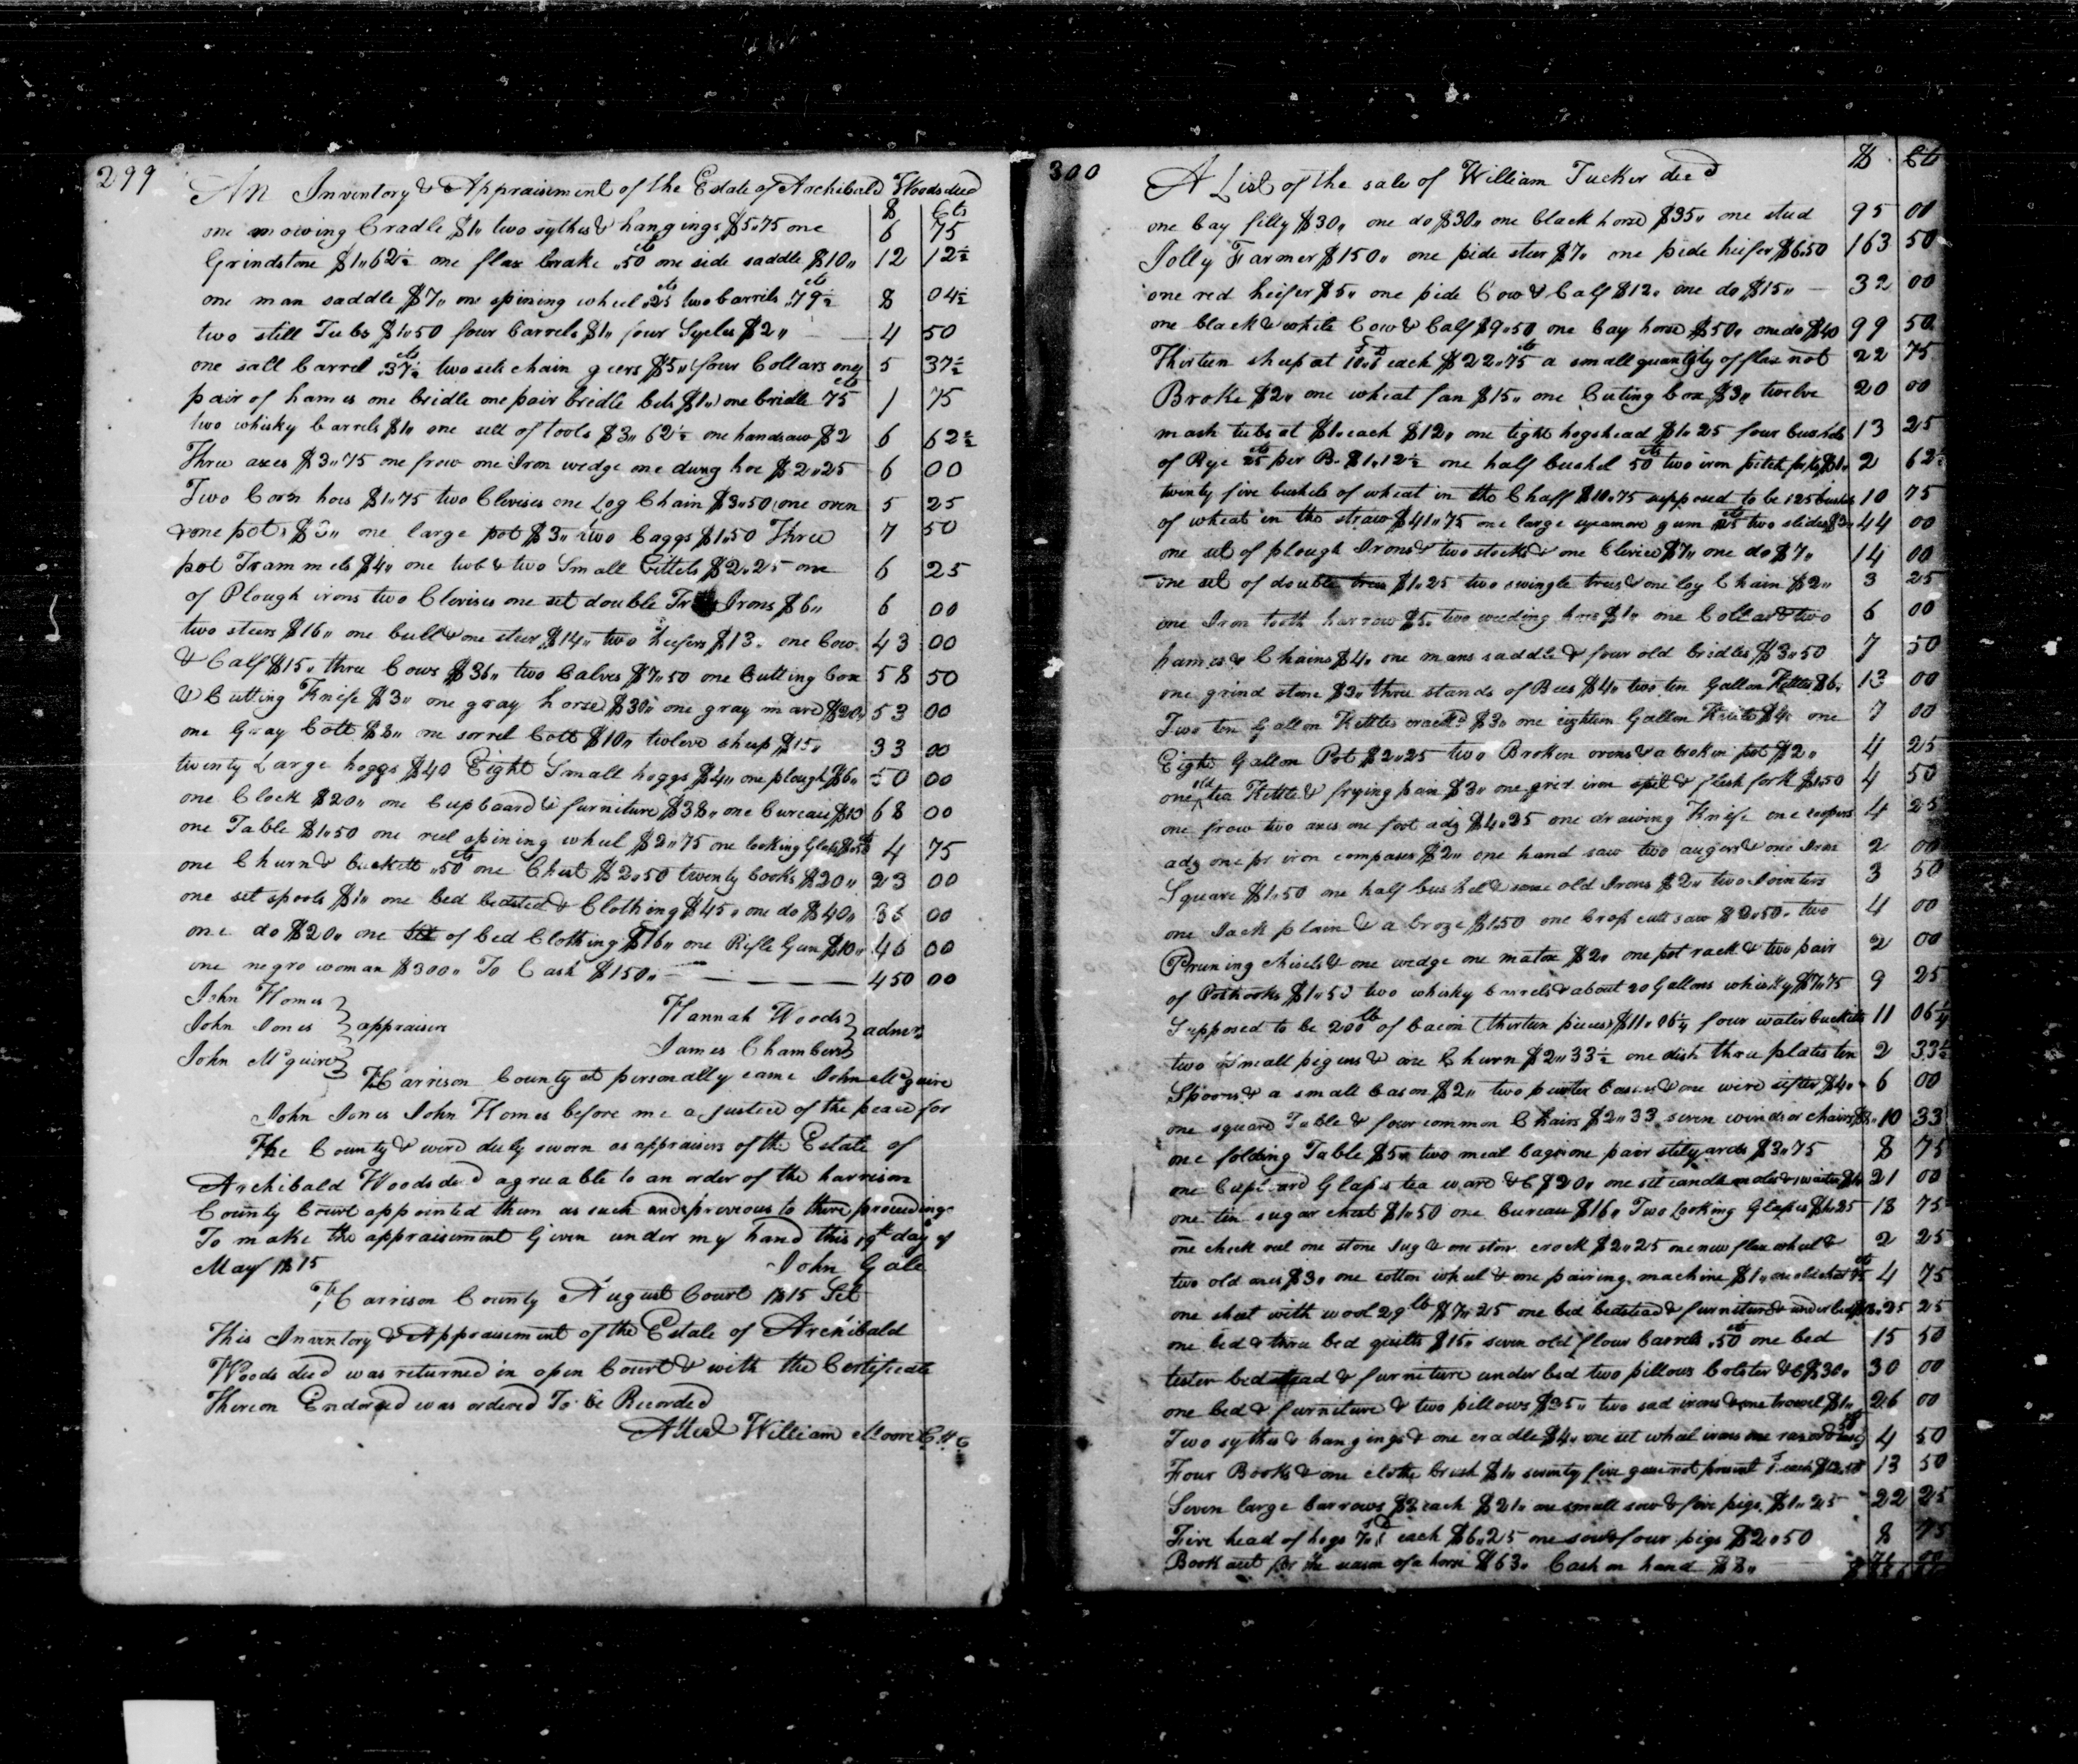 299
An Inventory & Appraisment of the Estate of Archibald Woods decd
$ Cts
one mowing Cradle $1,, two sythes & hangings $5,,75 one 6 75
Grindstone $1,,62½ one flax brake ,,50 cts one side saddle $10,, 12 12½
one man saddle $7,, one spining wheel ,25 cts two barrils ,79½ cts 8 04½
two still Tubs $1,,50 four barrels $1,, four Sycles $2,, 4 50
one salt barrel ,37½ cts two sets chain geers $5,, (four Collars one 5 37½
pair of hames one bridle one pair bridle bits $1,,) one bridle 75 cts 1 75
two whisky barrels $1,, one sett of tools $3,,62½ one handsaw $2 6 62½
Three axes $3,,75 one frow one Iron wedge one dung hoe $2,,25 6 00
Two Corn hoes $1,,75 two Clevises one Log Chain $3,,50 (one oven 5 25
& one pot $3,, one large pot $3,, two baggs $1,,50 Three 7 50
pot Trammels $4,, one tub & two Small Kittels $2,,25 one 6 25
of Plough irons two Clevises one set double Irons $6,, 6 00
two steers $16,, one bull & one steer $14,, two heifers $13,, one Cow 43 00
& Calf $15,, three Cows $36,, two Calves $7,,50 one Cutting box 58 50
& Cutting Knife $3,, one gray horse $30,, one gray mare $20,, 53 00
one Gray Colt $8,, one sorrel Colt $10,, twleve sheep $15,, 33 00
twenty Large hoggs $40 Eight Small hoggs $4,, one plough $6,, 50 00
one Clock $20,, one Cupboard & furniture $38,, one Bureau $10 68 00
one Table $1,,50 one reel spining wheel $2,,75 one looking Glass 50 cts 4 75
one Churn & bucketts ,,50 cts one Chest $2,,50 twenty books $20,, 23 00
one set spools $1,, one bed bedsted & Clothing $45,, one do $40,, 86 00
one do $20,, one Set of bed Clothing $16,, one Rifle Gun $10,, 46 00
one negro woman $300,, To Cash $150,, 450 00
John Homes
John Jones } appraisers Hannah Woods } admrs
John Mcguire James Chambers
Harrison County st personally came John Mcguire
John Jones John Homes before me a justice of the peace for
The County & were duly sworn as appraisers of the Estate of
Archibald Woods decd agreeable to an order of the harrison
County Court appointed them as such and previous to there proceedings
To make the appraisment Given under my hand this 19th day of
May 1815 John Gale
Harrison County August Court 1815 Sct
This Inventory & Appraisment of the Estate of Archibald
Woods decd was returned in open Court & with the Certificate
Thereon Endorsed was ordered To be Recorded
Attest William Moore C H C
300
A List of the sale of William Tucker decd $ Cts
one bay filly $30,, one do $30,, one black horse $35,, one stud 95 00
Jolly Farmer $150,, one pide steer $7,, one pide heifer $6,50 163 50
one red heifer $5,, one pide Cow & Calf $12,, one do $15,, 32 00
one black & white Cow & Calf $9,,50 one bay horse $50,, one do $40 99 50
Thirteen sheep at each $22,,75 a small quantity of flax not 22 75
Broke $2,, one wheat fan $15,, one Cuting box $3,, twelve 20 00
mash tubs at $1,, each $12,, one tight hogshead $1,,25 four bushels 13 25
of Rye 25 cts per B. $1,,12½ one half bushel 50 cts two iron pitch forks $1,, 2 62½
twenty five bushels of wheat in the Chaff $10,,75 supposed to be 125 bushels 10 75
of wheat in the straw $41,,75 one large sycamore gum 25 cts two slides $2,, 44 00
one set of plough Irons & two stocks & one Clevice $7,, one do $7,, 14 00
one set of double trees $1,,25 two swingle trees & one log Chain $2,, 3 25
one Iron tooth harrow $5,, two weeding hoes $1,, one Collar & two 6 00
hames & Chains $4,, one mans saddle & four old bridles $3,,50 7 50
one grind stone $3,, three stands of Bees $4,, two ten Gallon Kettles $6,, 13 00
Two ten Gallon Kettles crackd $3,, one eighteen Gallon Kettle $4,, one 7 00
Eight Gallon Pot $2,,25 two Broken ovens & a broken pot $2,, 4 25
one old tea Kettle & frying pan $3,, one grid iron spit & flesh fork $1,50 4 50
one frow two axes one foot adz $4,,25 one drawing Knife one coopers 4 25
adz one pr iron compases $2,, one hand saw two augers & one Iron 2 00
Square $1,,50 one half bushel & some old Irons $2,, two Jointers 3 50
one Jack plain & a broze $1,50 one Crop cutt saw $2,,50,, two 4 00
Pruning chisels & one wedge one matox $2,, one pot rack & two pair 2 00
of Pothooks $1,,50 two whisky barrels & about 20 Gallons whisky $7,,75 9 25
Supposed to be 200 lb of bacon (thirteen pieces) $11,,06¼ four water bucketts 11 06¼
two small pigens & one Churn $2,,33½ one dish three plates ten 2 33½
Spoons & a small bason $2,, two pewter basons & one wire sifter $4,, 6 00
one square Table & four common Chairs $2,,33 seven windsor chairs $8,, 10 33
one folding Table $5,, two meal bags one pair stilyards $3,,75 8 75
one Cupboard Glass tea ware &C $20,, one set candle molds & waiter $1,, 21 00
one tin sugar chest $1,,50 one bureau $16,, Two Looking Glasses $1,,25 18 75
one check reel one stone Jug & one stone crock $2,,25 one new flax wheel & 2 25
two old axes $3,, one cotton wheel & one pairing machine $1,, one old chest 75 cts 4 75
one sheet with wool 29 lb $7,,25 one bed bedstead & furniture & under bed 25 25
one bed & three bed quilts $15,, seven old flour barrels ,50 cts one bed 15 50
tester bedstead & furniture under bed two pillows bolster &C $30,, 30 00
one bed & furniture & two pillows $35,, two sad irons & one trowel $1,, 26 00
Two sythes & hangings & one cradle $4,, one set wheel irons one razor & case 4 50
Four Books & one cloths brush $1,, seventy five geese not present each $12,50 13 50
Seven large barrows $3 each $21,, one small sow & five pigs $1,,25 22 25
Five head of hogs each $6,,25 one sow & four pigs $2,,50 8 75
Book acct for the season of a horse $63,, Cash on hand $8,, 71 00